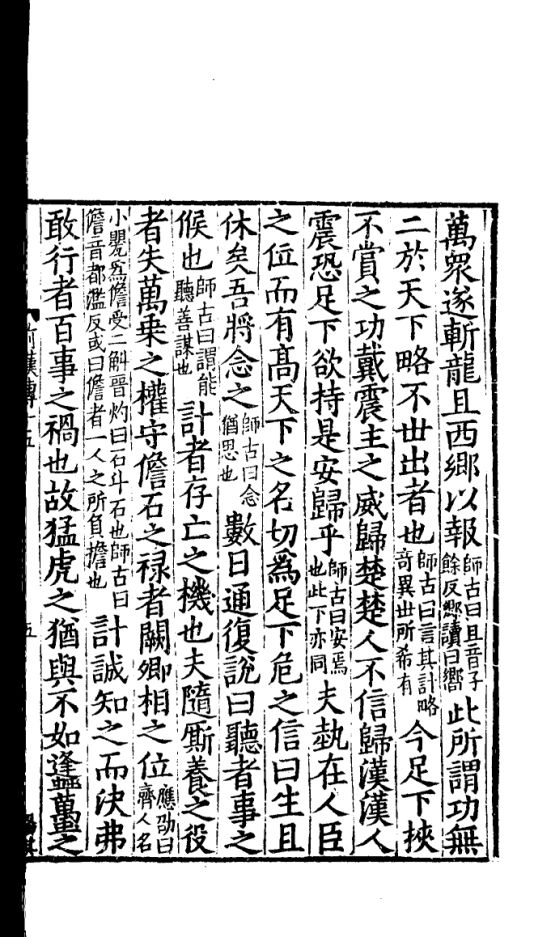 萬衆遂斬龍且西鄉以報師古曰且音子餘反鄉讀曰嚮此所謂功無
二於天下略不世出者也師古曰言其計略奇異世所希有今足下挾
不賞之功戴震主之威歸楚楚人不信歸漢漢人
震恐足下欲持是安歸乎師古曰安焉也此下亦同夫埶在人臣
之位而有髙天下之名切爲足下危之信曰生且
休矣吾將念之師古曰念猶思也數日通復說曰聽者事之
候也師古曰謂能聽善謀也計者存亡之機也夫隨廝養之役
者失萬乗之權守儋石之禄者闕卿相之位應劭曰齊人名
小甖爲儋受二斛晉灼曰石斗石也師古曰儋音都濫反或曰儋者一人之所負擔也計誠知之而決弗
敢行者百事之禍也故猛虎之猶與不如蠭蠆之
五